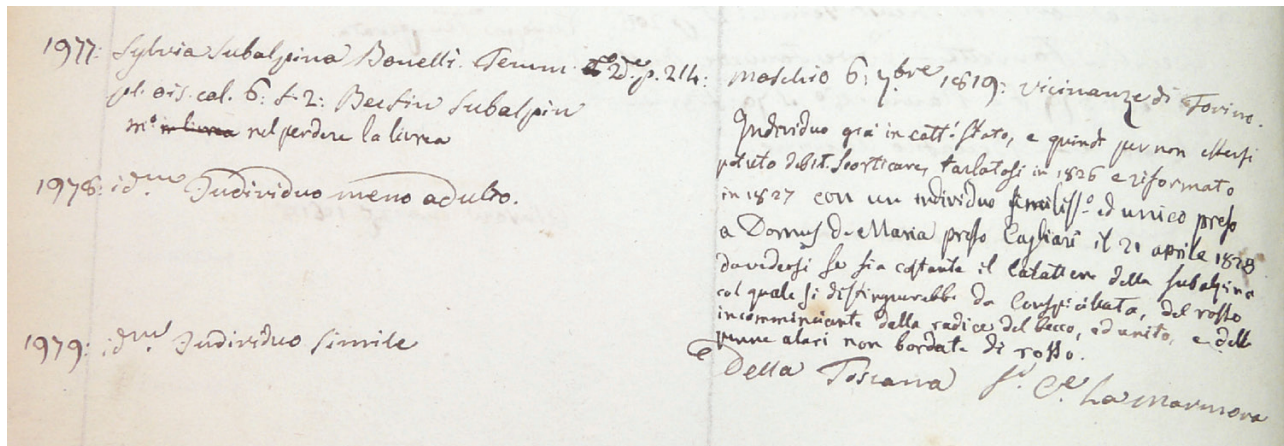 1977: Sylvia Subalpina Bonelli. Temm. 2.de p. 214:
pl. ois. col. 6: f. 2: Becfin Subalpin
m.o in livrea nel perdere la livrea
1978: id.m Individuo meno adulto.
1979: id.m Individuo simile
maschio 6: 7bre 1819: vicinanze di Torino.
Individuo già in catt.o stato, e quindi per non essersi
potuto debit. scorticare, tarlatosi in 1826 e riformato
in 1827 con un individuo similiss.o ed unico preso
a Domus de Maria presso Cagliari il 21 aprile 1828
da vedersi se sia costante il carattere della subalpina
col quale si distinguerebbe da Conspicillata, del rosso
incomminciante dalla radice del becco, ed unito, e delle
penne alari non bordate di rosso.
Della Toscana C.e La Marmora